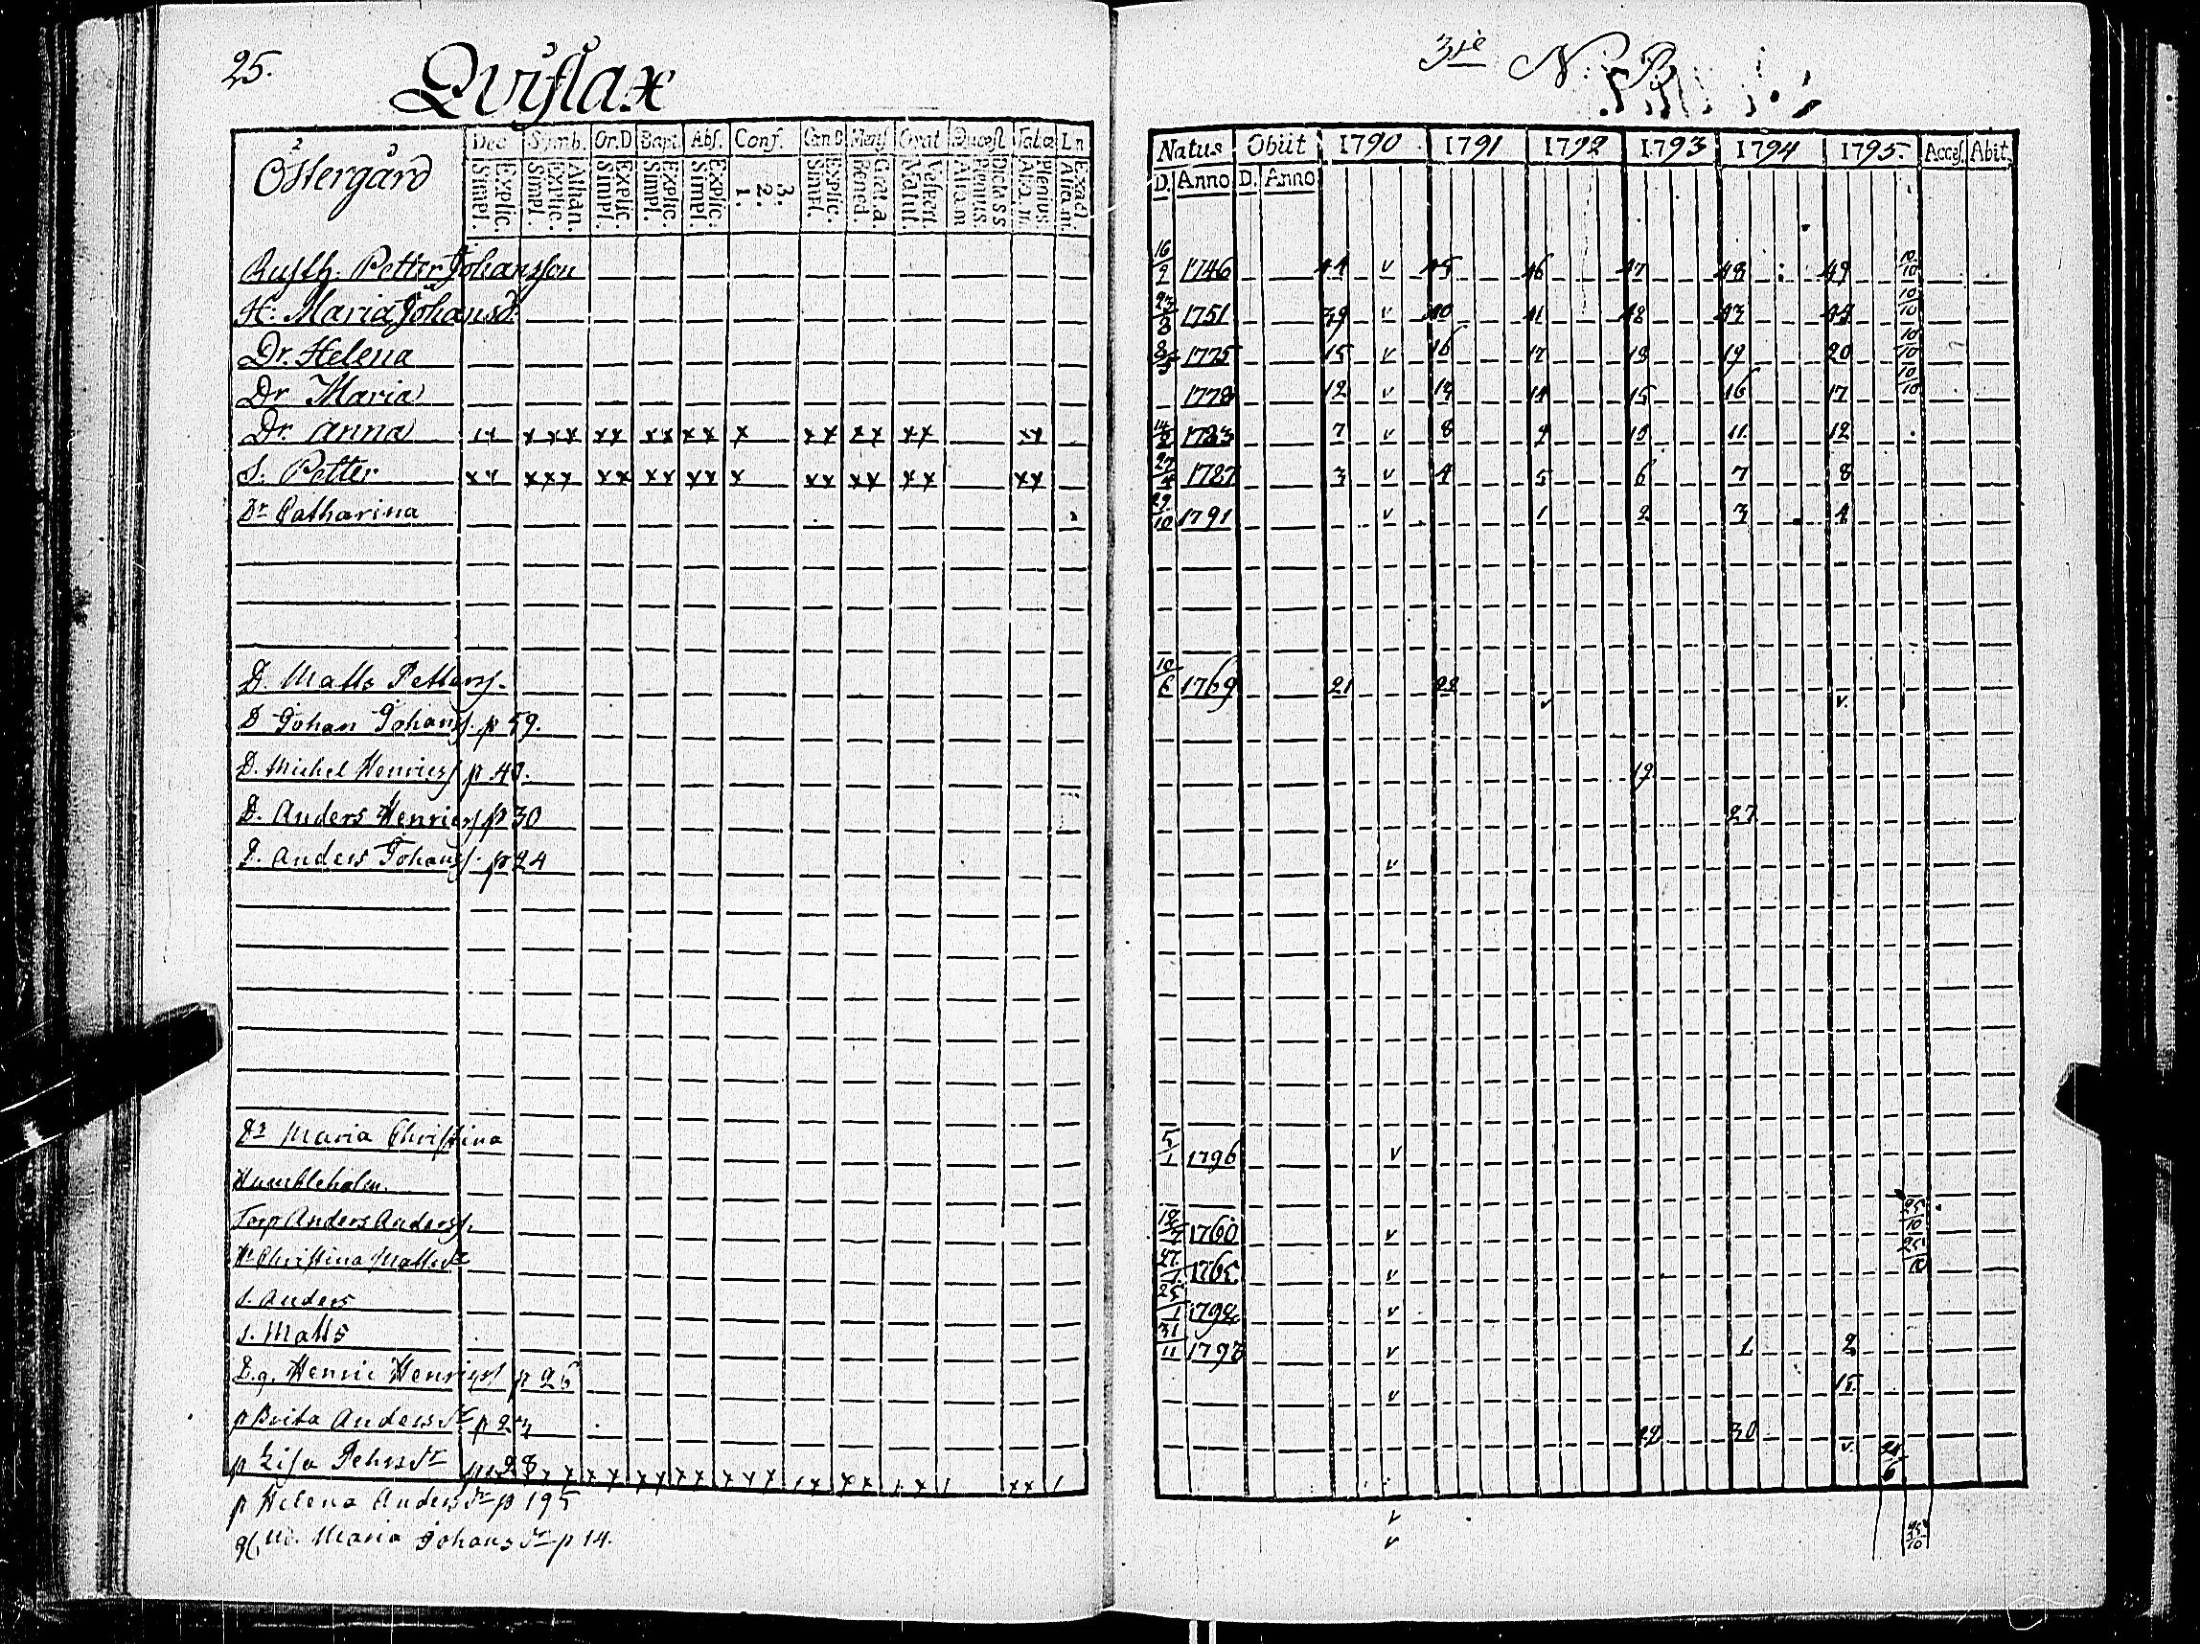 25.
Qviflax
3ie N. B.
2 Östergård
Dec. Symb. Or.D Bapt. Abs. Conf. Cœn D Mens Orat Quæst Tabæ Ln
Simpl. Explic. Simpl. Explic. Athan. Simpl. Explic. Simpl. Explic. Simpl. Explic. 1. 2. 3. Simpl. Explic. Bened. Grat. a. Matut. Vespert Aliam Plenius. Dicta SS Aliam. Plenius Aliam. Exact
Natus Obiit 1790 1791 1792 1793 1794 1795. Acces. Abit.
D. Anno D. Anno
Rusth. Petter Johansson 16/2 1746 44 v 45 46 47 48 49 10/10
H. Maria Johansd. 23/3 1751 39 v 40 41 42 43 44 10/10
Dr. Helena 1775 15 v 16 17 18 19 20 10/10
Dr Maria 1778 12 v 13 14 15 16 17 10/10
Dr. Anna xx xxx xx xx xx x xx xx xx xx 1783 7 v 8 9 10 11 12
S. Petter xx xxx xx xx xx x xx xx xx xx 27/4 1787 3 v 4 5 6 7 8
Dr Catharina 29/10 1791 v 1 2 3 4
D. Matts Petterss. 10/6 1769 21 22 v v
D Johan Johans. p 59.
D. Michel Henricss p 40. 19
D. Anders Henricss p 30 27
D. Anders Johanss. p 24 v
Dr Maria Christina 5/1 1796 v
Humbleholm.
Torp Anders Anderss. 1760 v 25/10
Hr Christina Mattsdr 27/1 1765 v 25/10
S. Anders 25/1 1792 v
S. Matts 31/11 1793 v 1 2
D.g. Henric Henricss p 26 v 15
p Brita Andersdr p 23 22 30
p Lisa Pehrsdr p 28 x x x x x x x x x x x x x x x x v 24/6
p Helena Andersdr p 195 v
Maria Johansdr p 14. v 25/10